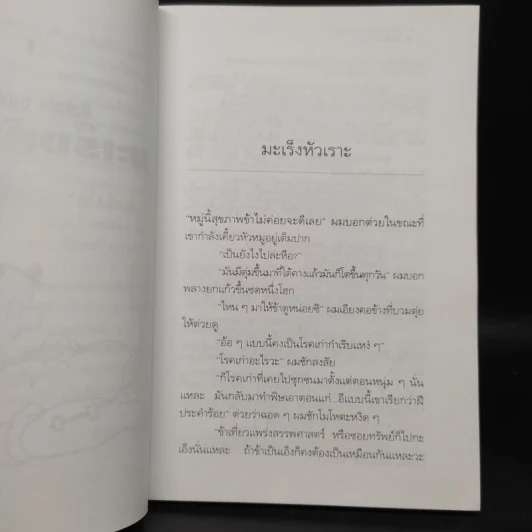 มะเร็งหัวเราะ
"หมู่นี้สุขภาพข้าไม่ค่อยจะดีเลย" ผมบอกต่วยในขณะที่
เขากำลังเคี้ยวหัวหมูอยู่เต็มปาก
"เป็นยังไงไปล่ะหือ?"
"มันมีตุ่มขึ้นมาที่ใต้คางแล้วมันก็โตขึ้นทุกวัน" ผมบอก
พลางยกแก้วขึ้นซดหนึ่งโฮก
"ไหน ๆ มาให้ข้าดูหน่อยซิ" ผมเอียงคอข้างที่บวมตุ่ย
ให้ต่วยดู
"อ้อ ๆ แบบนี้คงเป็นโรคเก่ากำเริบแหง ๆ"
"โรคเก่าอะไรวะ" ผมชักสงสัย
"ก็โรคเก่าที่เคยไปซุกซนมาตั้งแต่ตอนหนุ่ม ๆ นั่น
แหละ มันกลับมาทำพิษเอาตอนแก่ อีแบบนี้เขาเรียกว่าฝี
ประคำร้อย" ต่วยว่าฉอด ๆ ผมชักโมโหตะหงิด ๆ
"ข้าเที่ยวแพร่งสรรพศาสตร์ หรือซอยทรัพย์ก็ไปกะ
เอ็งนั่นแหละ ถ้าข้าเป็นเอ็งก็คงต้องเป็นเหมือนกันแหละวะ